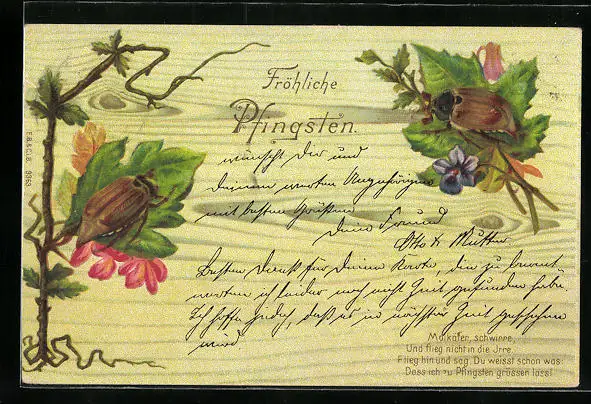 Fröhliche
Pfingsten.
wünscht Dir und
Deinen werten Angehörigen
mit besten Grüßen
Dein Freund
Otto & Mutter
Besten Dank für Deine Karte, die zu beant-
worten ich leider noch nicht Zeit gefunden habe.
Ich hoffe jedoch, daß es in nächster Zeit geschehen
wird.
Maikäfer, schwirre,
Und flieg nicht in die Jrre.
Flieg hin und sag, Du weisst schon was:
Dass ich zu Pfingsten grüssen lass!